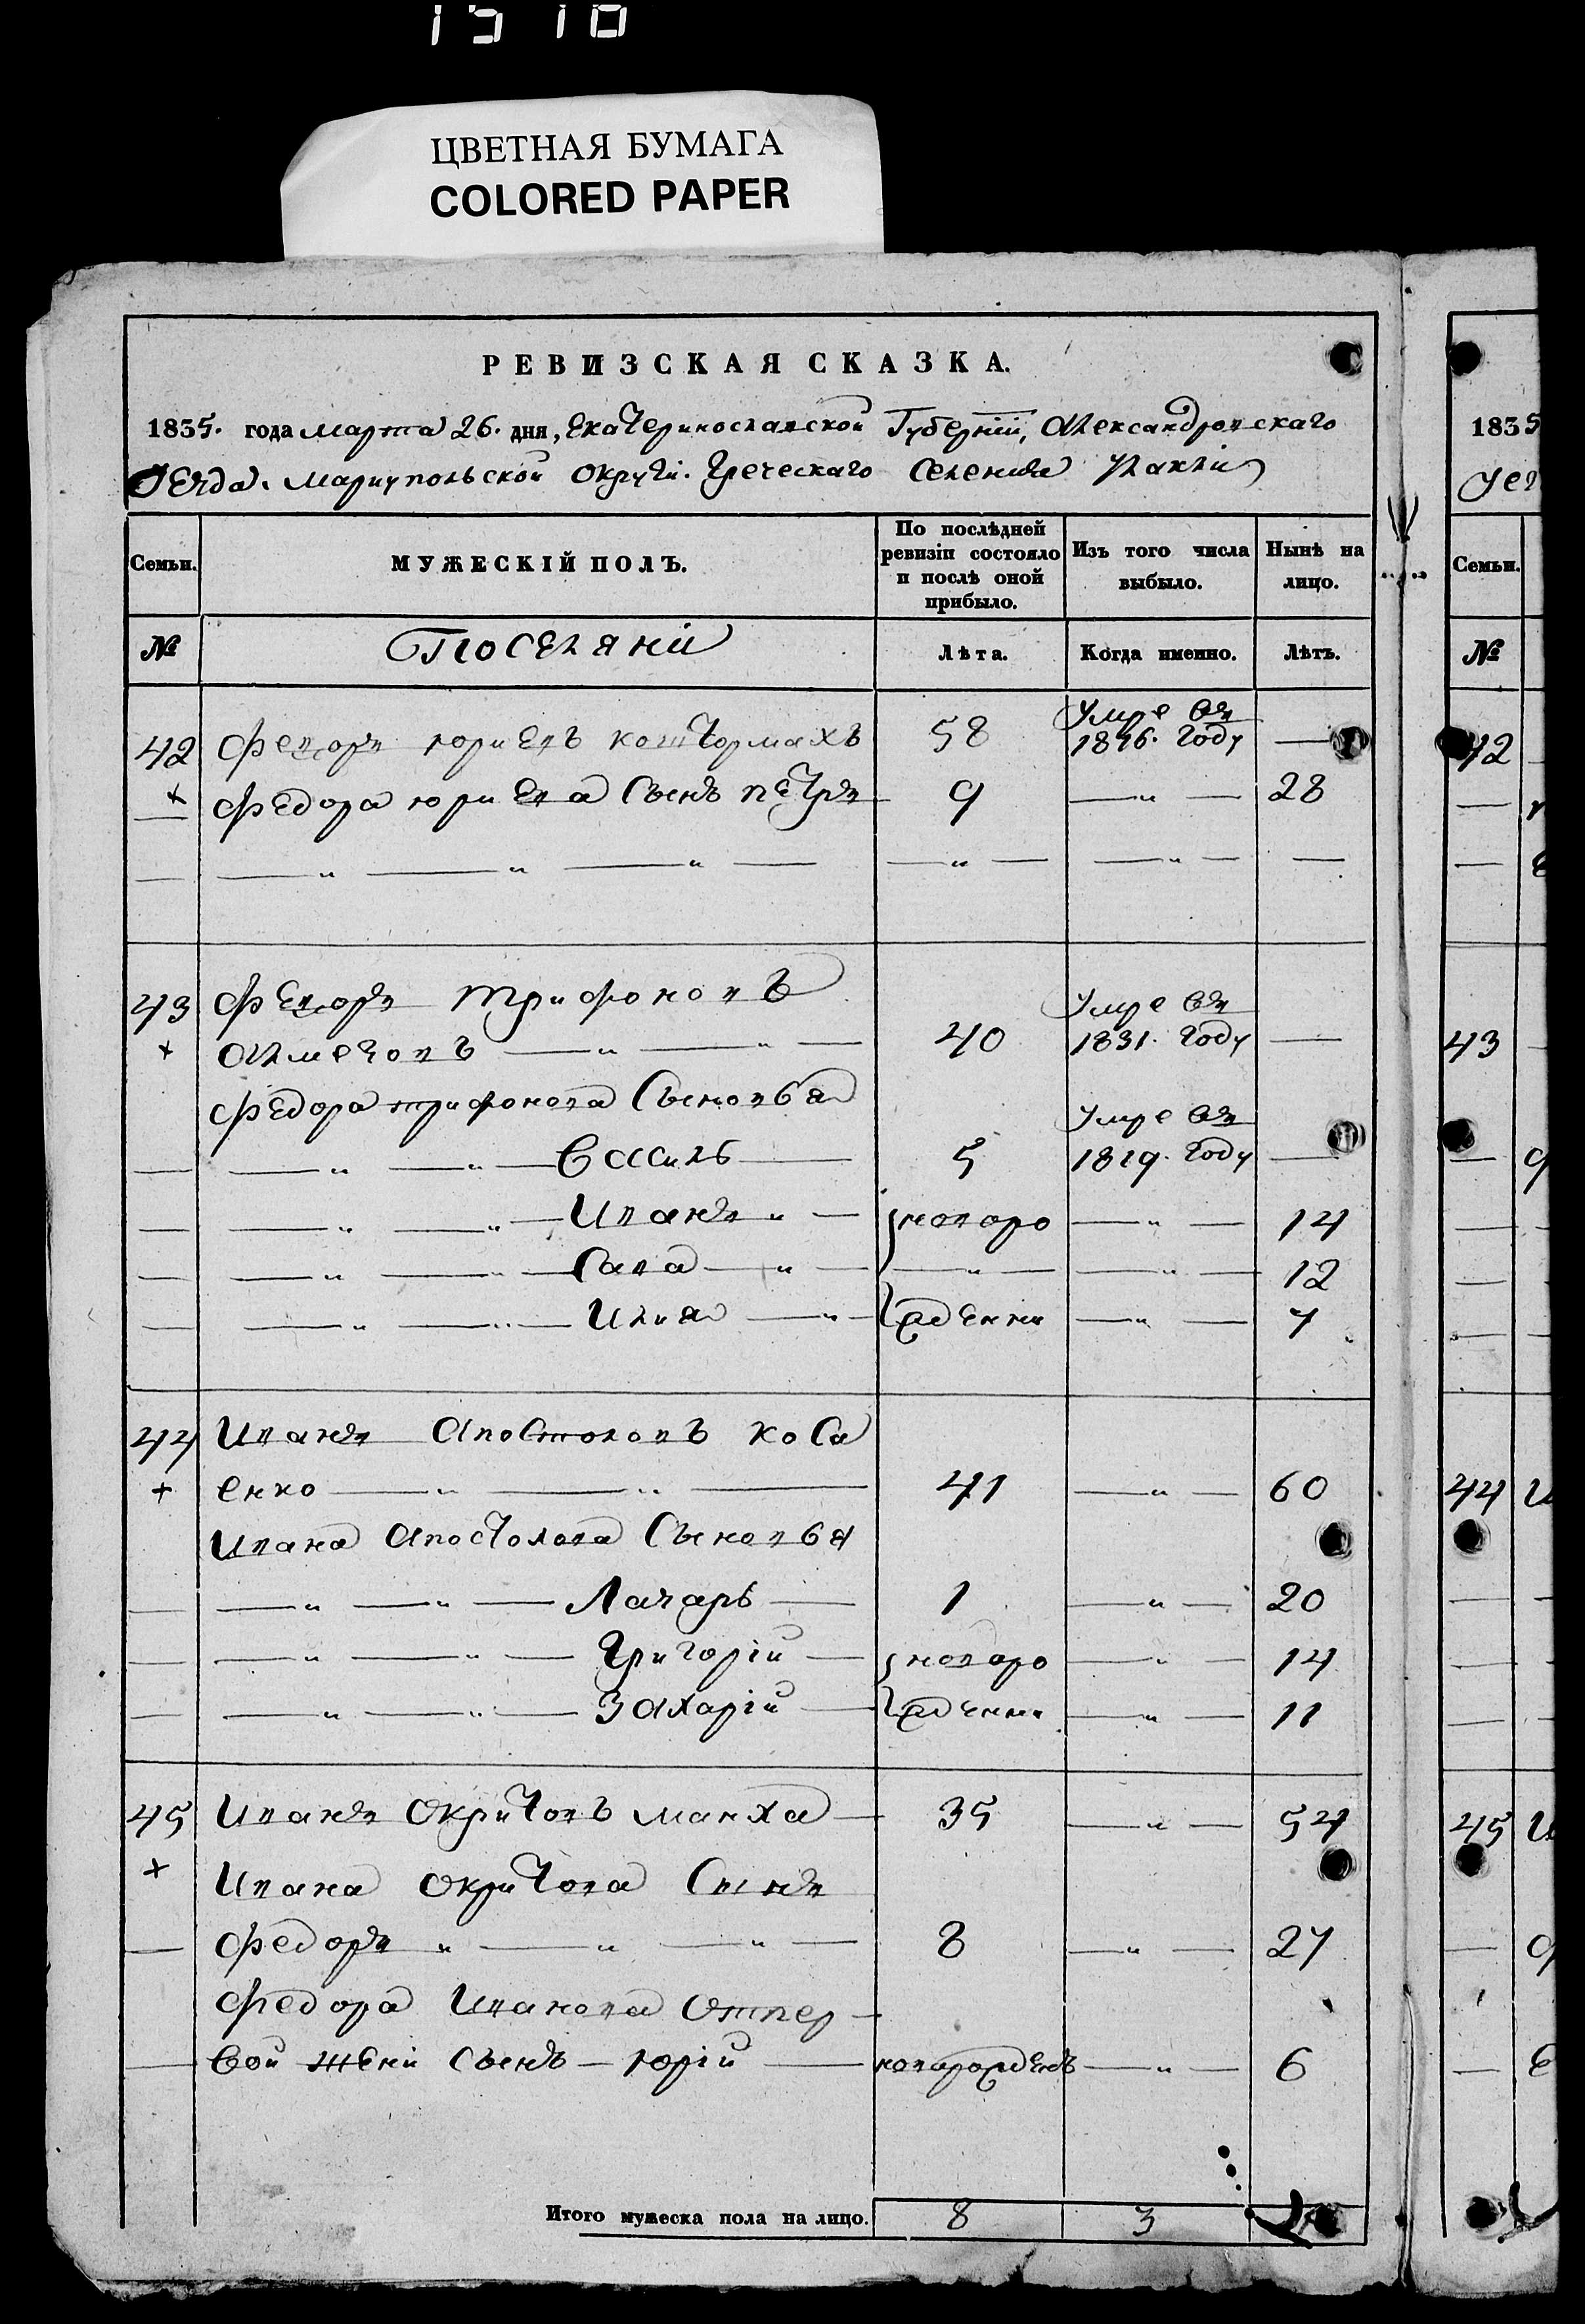 1510
ЦВЕТНАЯ БУМАГА
COLORED PAPER
РЕВИЗСКАЯ СКАЗКА.
1835. года марта 26. дня, Екатеринославской Губерніи, Александровскаго
Уезда. Мариупольской Округи. Греческаго Селенія
Семьи. МУЖЕСКІЙ ПОЛЪ. По послѣдней ревизіи состояло и послѣ оной прибыло. Изъ того числа выбыло. Нынѣ на лицо.
№ Поселяни Лѣта. Когда именно. Лѣтъ.
42 Федоръ Юриевъ 58 Умре въ 1816. году —
+ Федора Юриева Сынъ Петръ 9 — 28
43 Федоръ Трифоновъ
+ 40 Умре въ 1831. году —
Федора Трифонова Сыновья
Василь 5 Умре въ 1819. году —
Иванъ новоро 14
Сава 12
Илиа жденни 7
44 Иванъ Апостоловъ Коса
+ енко 41 — 60
Ивана Апостолова Сыновья
Лазарь 1 — 20
Григорій новоро 14
Захарій жденни 11
45 Иванъ Окритовъ Манха 35 — 54
+ Ивана Окритова Сынъ
Федоръ 8 — 27
Федора Иванова Отпер
вой жени Сынъ — Юрій новорожденъ — 6
Итого мужеска пола на лицо. 8 3
1835
Уез
Семьи.
№
42
43
44 И
45 И